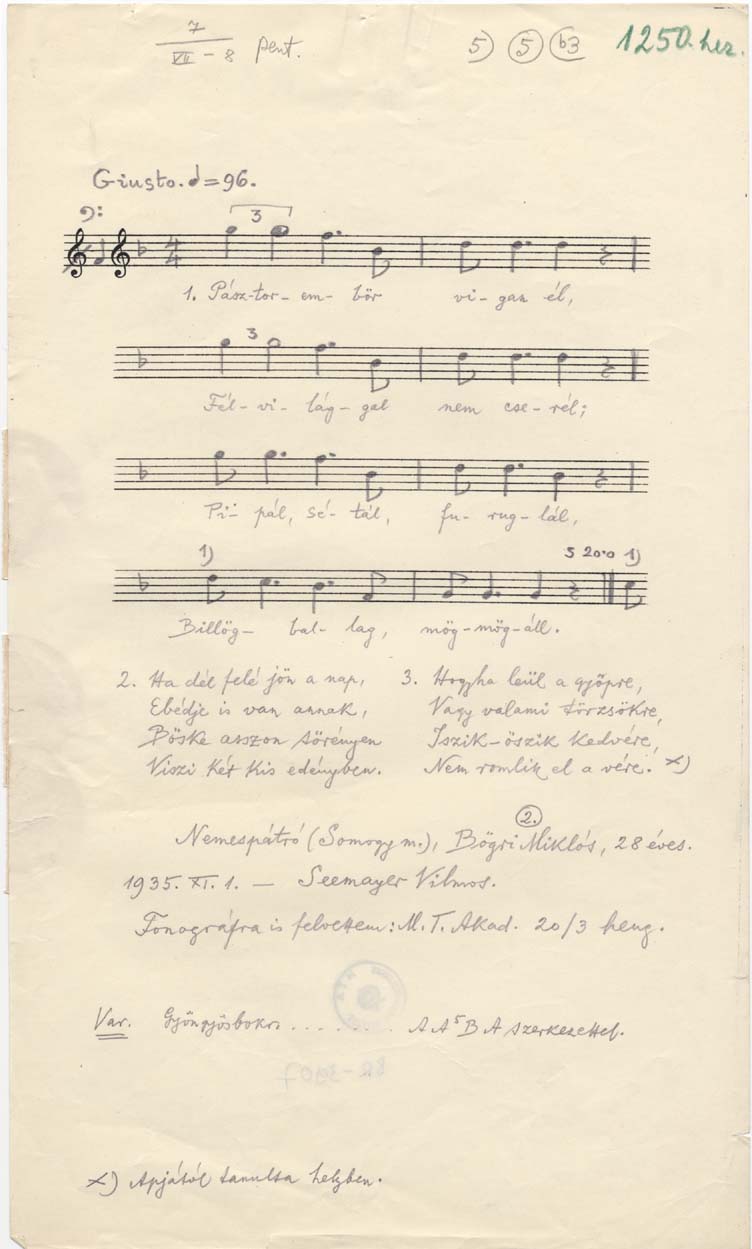 7
VII – 8 pent.
5) 5 b3 1250. hez.
Giusto. ♩=96.
3
1. Pász-tor- em- bör vi- gan él,
3
Fél- vi- lág- gal nem cse- rél;
Pi- pál, sé- tál, fu- rug- lál,
1) 5 20·0 1)
Billög- bal- lag, mög-mög-áll.
2. Ha dél felé jön a nap,
Ebédje is van annak,
Böske asszon sörényen
Viszi két kis edényben.
3. Hogyha leül a gyöpre,
Vagy valami törzsökre,
Iszik-öszik kedvére,
Nem romlik el a vére. x)
2.
Nemespátró (Somogy m.), Bögri Miklós, 28 éves.
1935. XI. 1. — Seemayer Vilmos.
Fonográfra is felvettem: M. T. Akad. 20/3 heng.
Var. Gyöngyösbokr. . . . . . . . A A⁵ B A szerkezettel.
x) Apjától tanulta helyben.